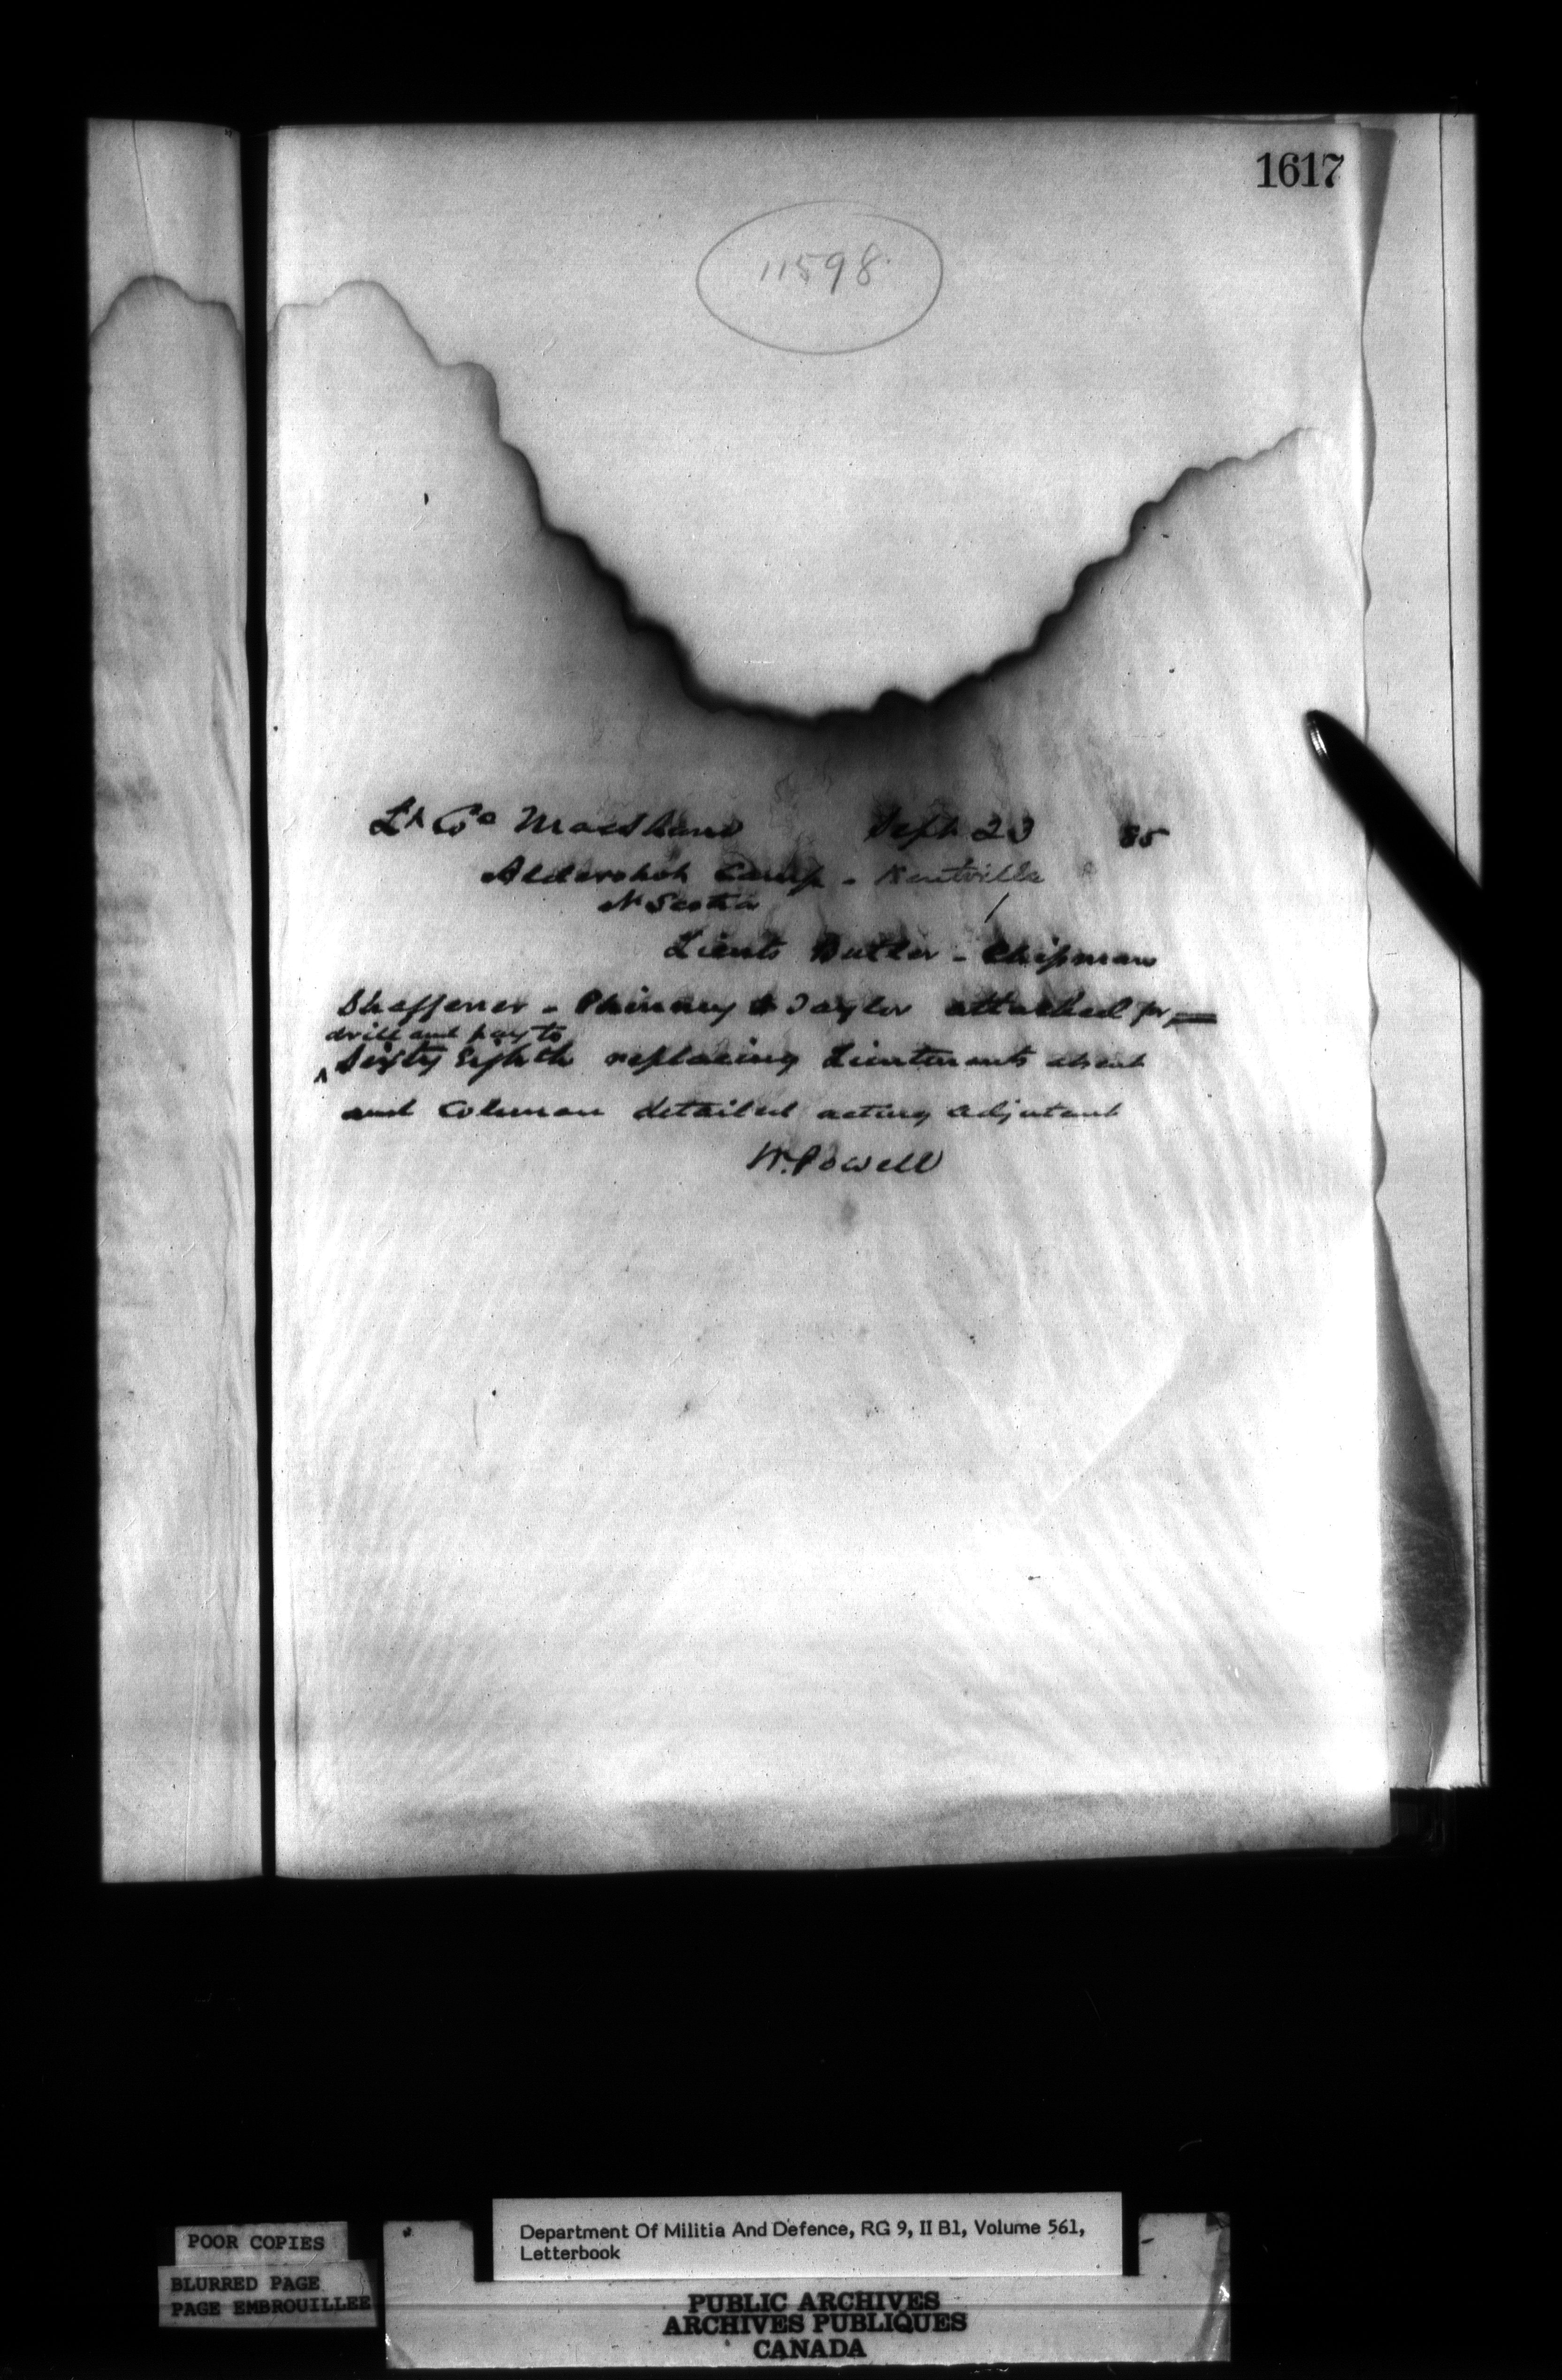 1617
11598
Lt Co MacShane Sept 23 85
Aldershot Camp - Kentville
N Scotia
Lieuts Butler - Chipman
Shaffener - Phinney & Taylor attached for
drill and pay to
Sixty Eighth replacing Lieutenants absent
and Coleman detailed acting adjutant
W. Powell
POOR COPIES
BLURRED PAGE
PAGE EMBROUILLEE
Department Of Militia And Defence, RG 9, II B1, Volume 561,
Letterbook
PUBLIC ARCHIVES
ARCHIVES PUBLIQUES
CANADA